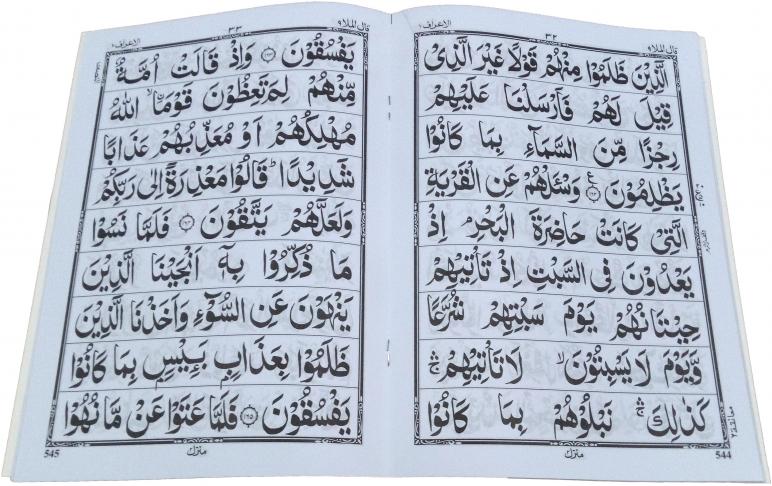 قال الملا ٩
٣٢
الاعراف ٧
الَّذِيْنَ ظَلَمُوْا مِنْهُمْ قَوْلًا غَيْرَ الَّذِىْ
قِيْلَ لَهُمْ فَاَرْسَلْنَا عَلَيْهِمْ
رِجْزًا مِّنَ السَّمَآءِ بِمَا كَانُوْا
يَظْلِمُوْنَ ۝١٦٢ ع وَسْئَلْهُمْ عَنِ الْقَرْيَةِ
الَّتِىْ كَانَتْ حَاضِرَةَ الْبَحْرِ ۘ اِذْ
يَعْدُوْنَ فِى السَّبْتِ اِذْ تَاْتِيْهِمْ
حِيْتَانُهُمْ يَوْمَ سَبْتِهِمْ شُرَّعًا
وَّيَوْمَ لَا يَسْبِتُوْنَ ۙ لَا تَاْتِيْهِمْ ۛۚ
كَذٰلِكَ ۛۚ نَبْلُوْهُمْ بِمَا كَانُوْا
معانقة ٢
544
منزل
قال الملا ٩
٣٣
الاعراف ٧
يَفْسُقُوْنَ ۝١٦٣ وَاِذْ قَالَتْ اُمَّةٌ
مِّنْهُمْ لِمَ تَعِظُوْنَ قَوْمًا ۙ اللّٰهُ
مُهْلِكُهُمْ اَوْ مُعَذِّبُهُمْ عَذَابًا
شَدِيْدًا ؕ قَالُوْا مَعْذِرَةً اِلٰى رَبِّكُمْ
وَلَعَلَّهُمْ يَتَّقُوْنَ ۝١٦٤ فَلَمَّا نَسُوْا
مَا ذُكِّرُوْا بِهٖۤ اَنْجَيْنَا الَّذِيْنَ
يَنْهَوْنَ عَنِ السُّوْٓءِ وَاَخَذْنَا الَّذِيْنَ
ظَلَمُوْا بِعَذَابٍۭ بَئِيْسٍۭ بِمَا كَانُوْا
يَفْسُقُوْنَ ۝١٦٥ فَلَمَّا عَتَوْا عَنْ مَّا نُهُوْا
منزل
545